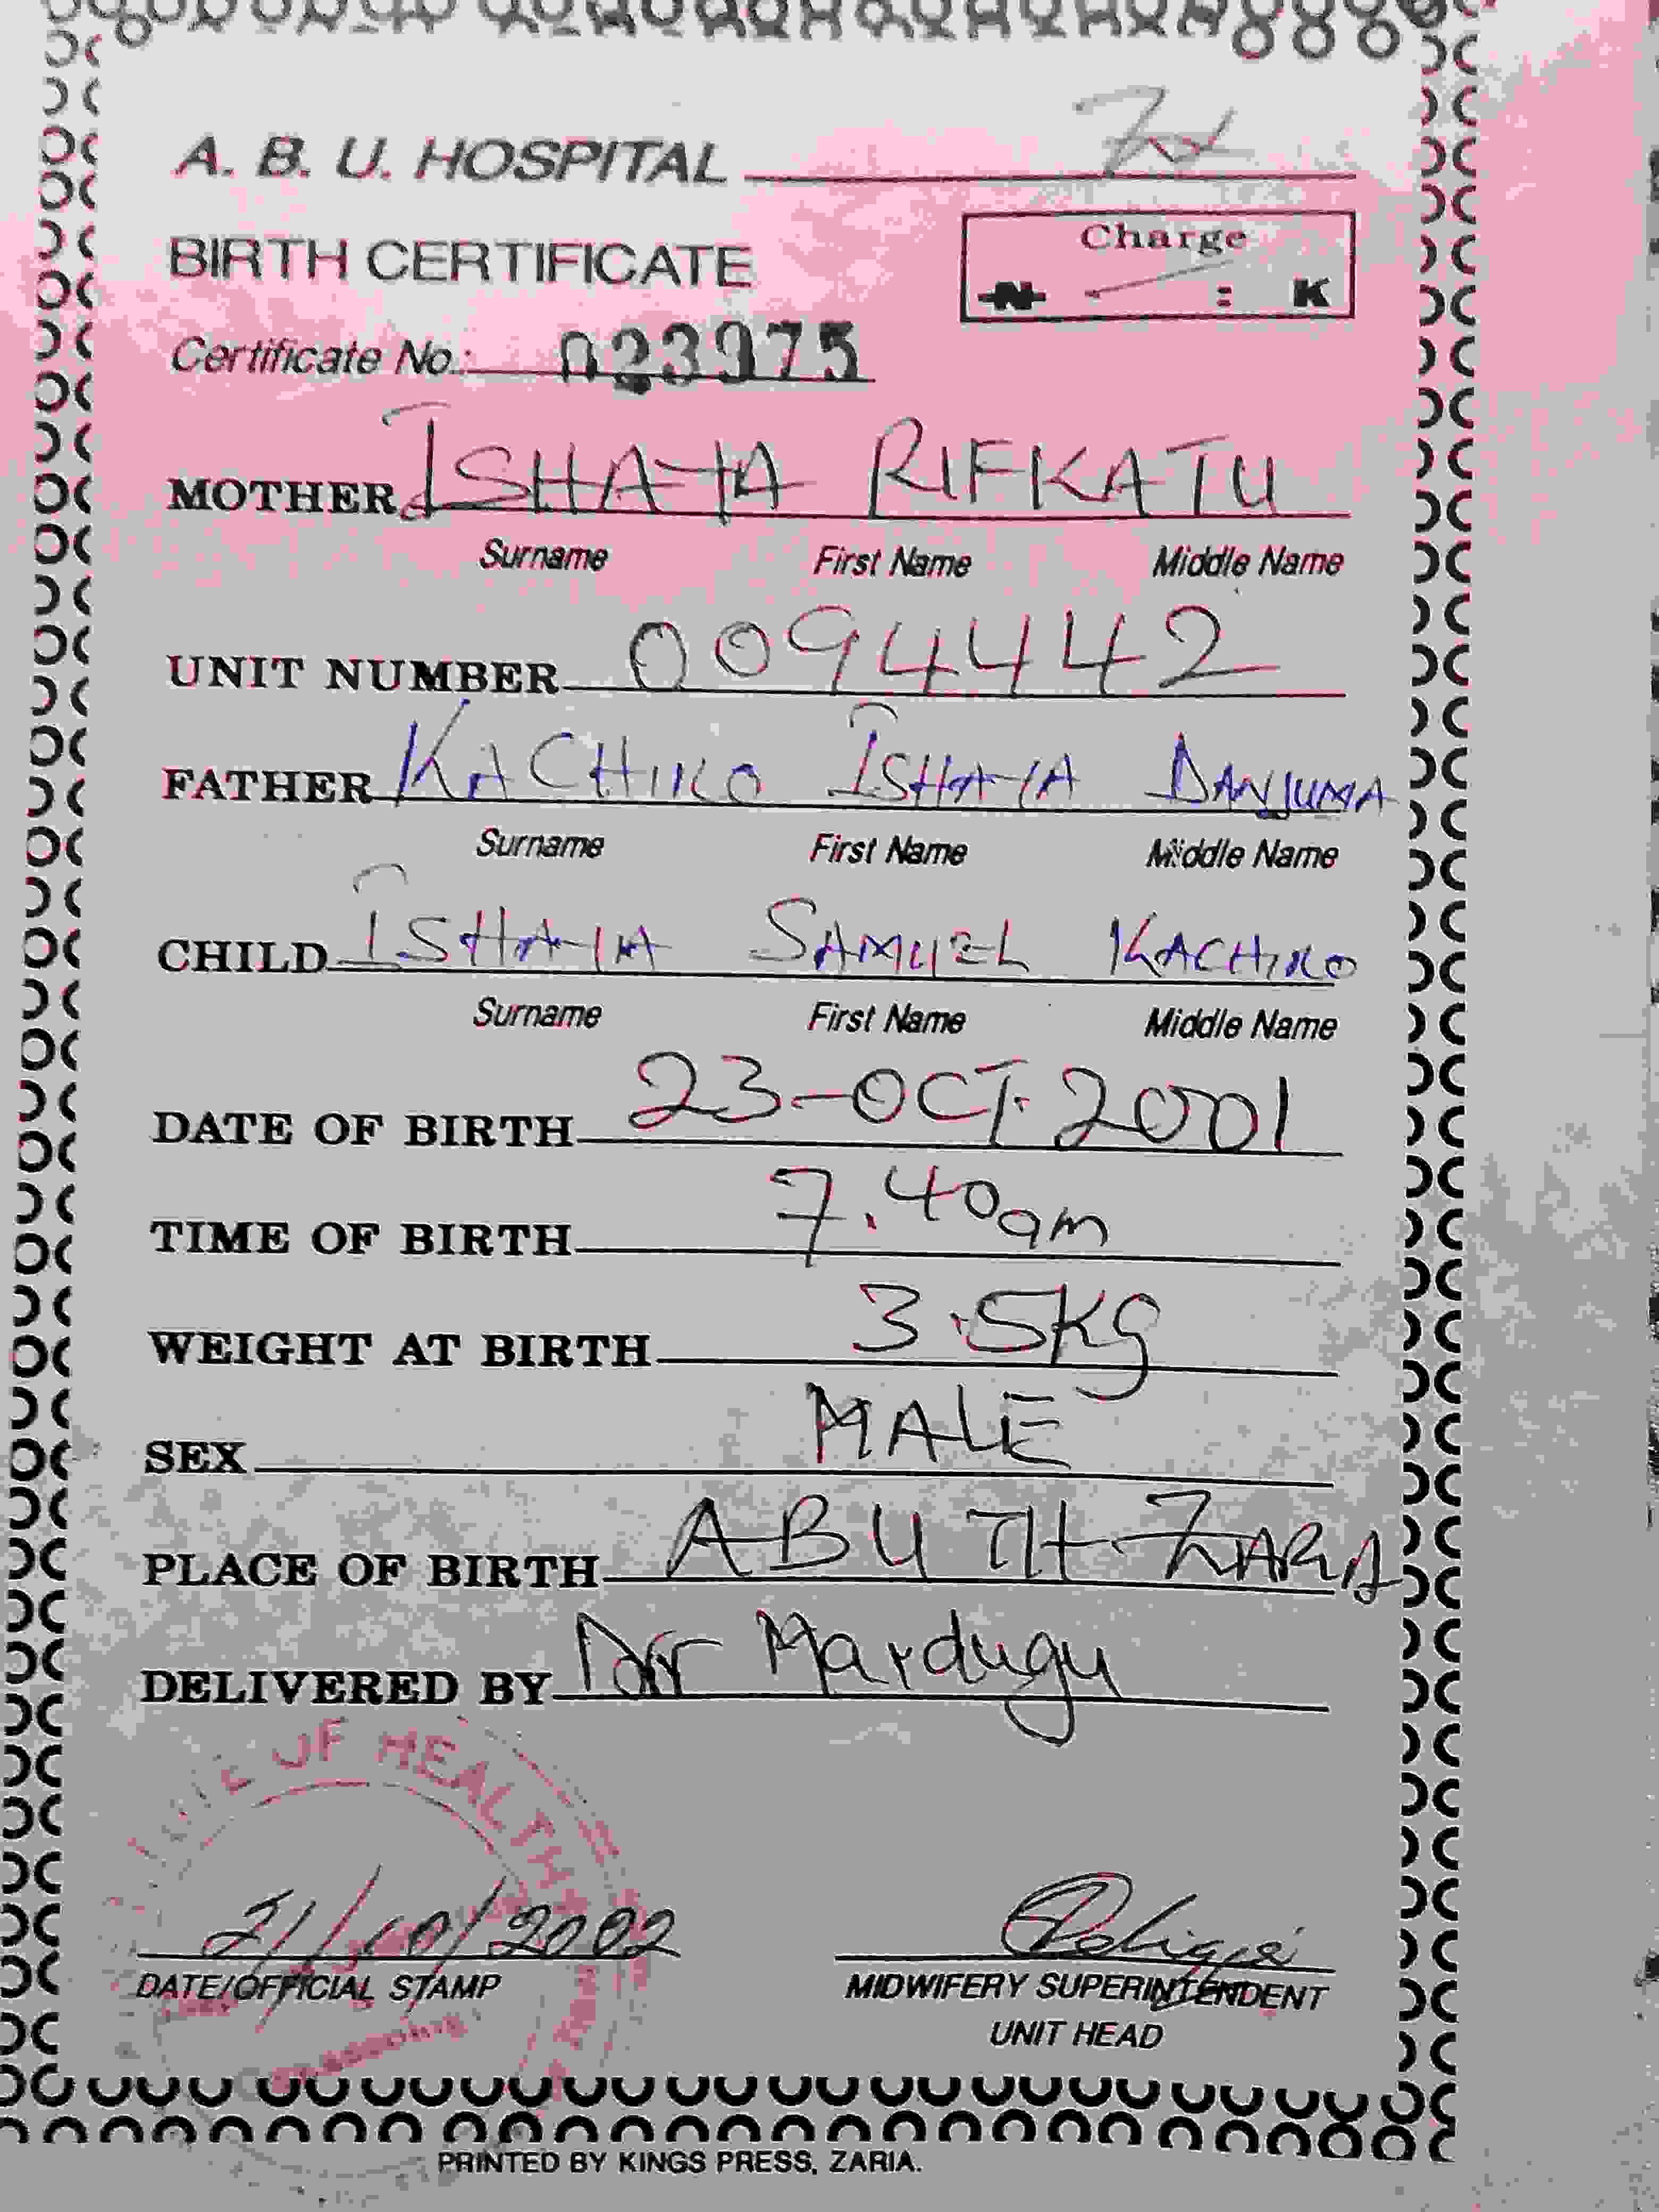 A. B. U. HOSPITAL
BIRTH CERTIFICATE
Charge
₦ : K
Certificate No.: 023975
MOTHER ISHAYA RIFKATU
Surname First Name Middle Name
UNIT NUMBER 0094442
FATHER KACHIRO ISHAYA DANJUMA
Surname First Name Middle Name
CHILD ISHAYA SAMUEL KACHIRO
Surname First Name Middle Name
DATE OF BIRTH 23-OCT.2001
TIME OF BIRTH 7.40am
WEIGHT AT BIRTH 3.5Kg
SEX MALE
PLACE OF BIRTH ABUTH-ZARIA
DELIVERED BY Mardugu
OF HEALTH
21/10/2002
DATE/OFFICIAL STAMP
MIDWIFERY SUPERINTENDENT
UNIT HEAD
PRINTED BY KINGS PRESS, ZARIA.